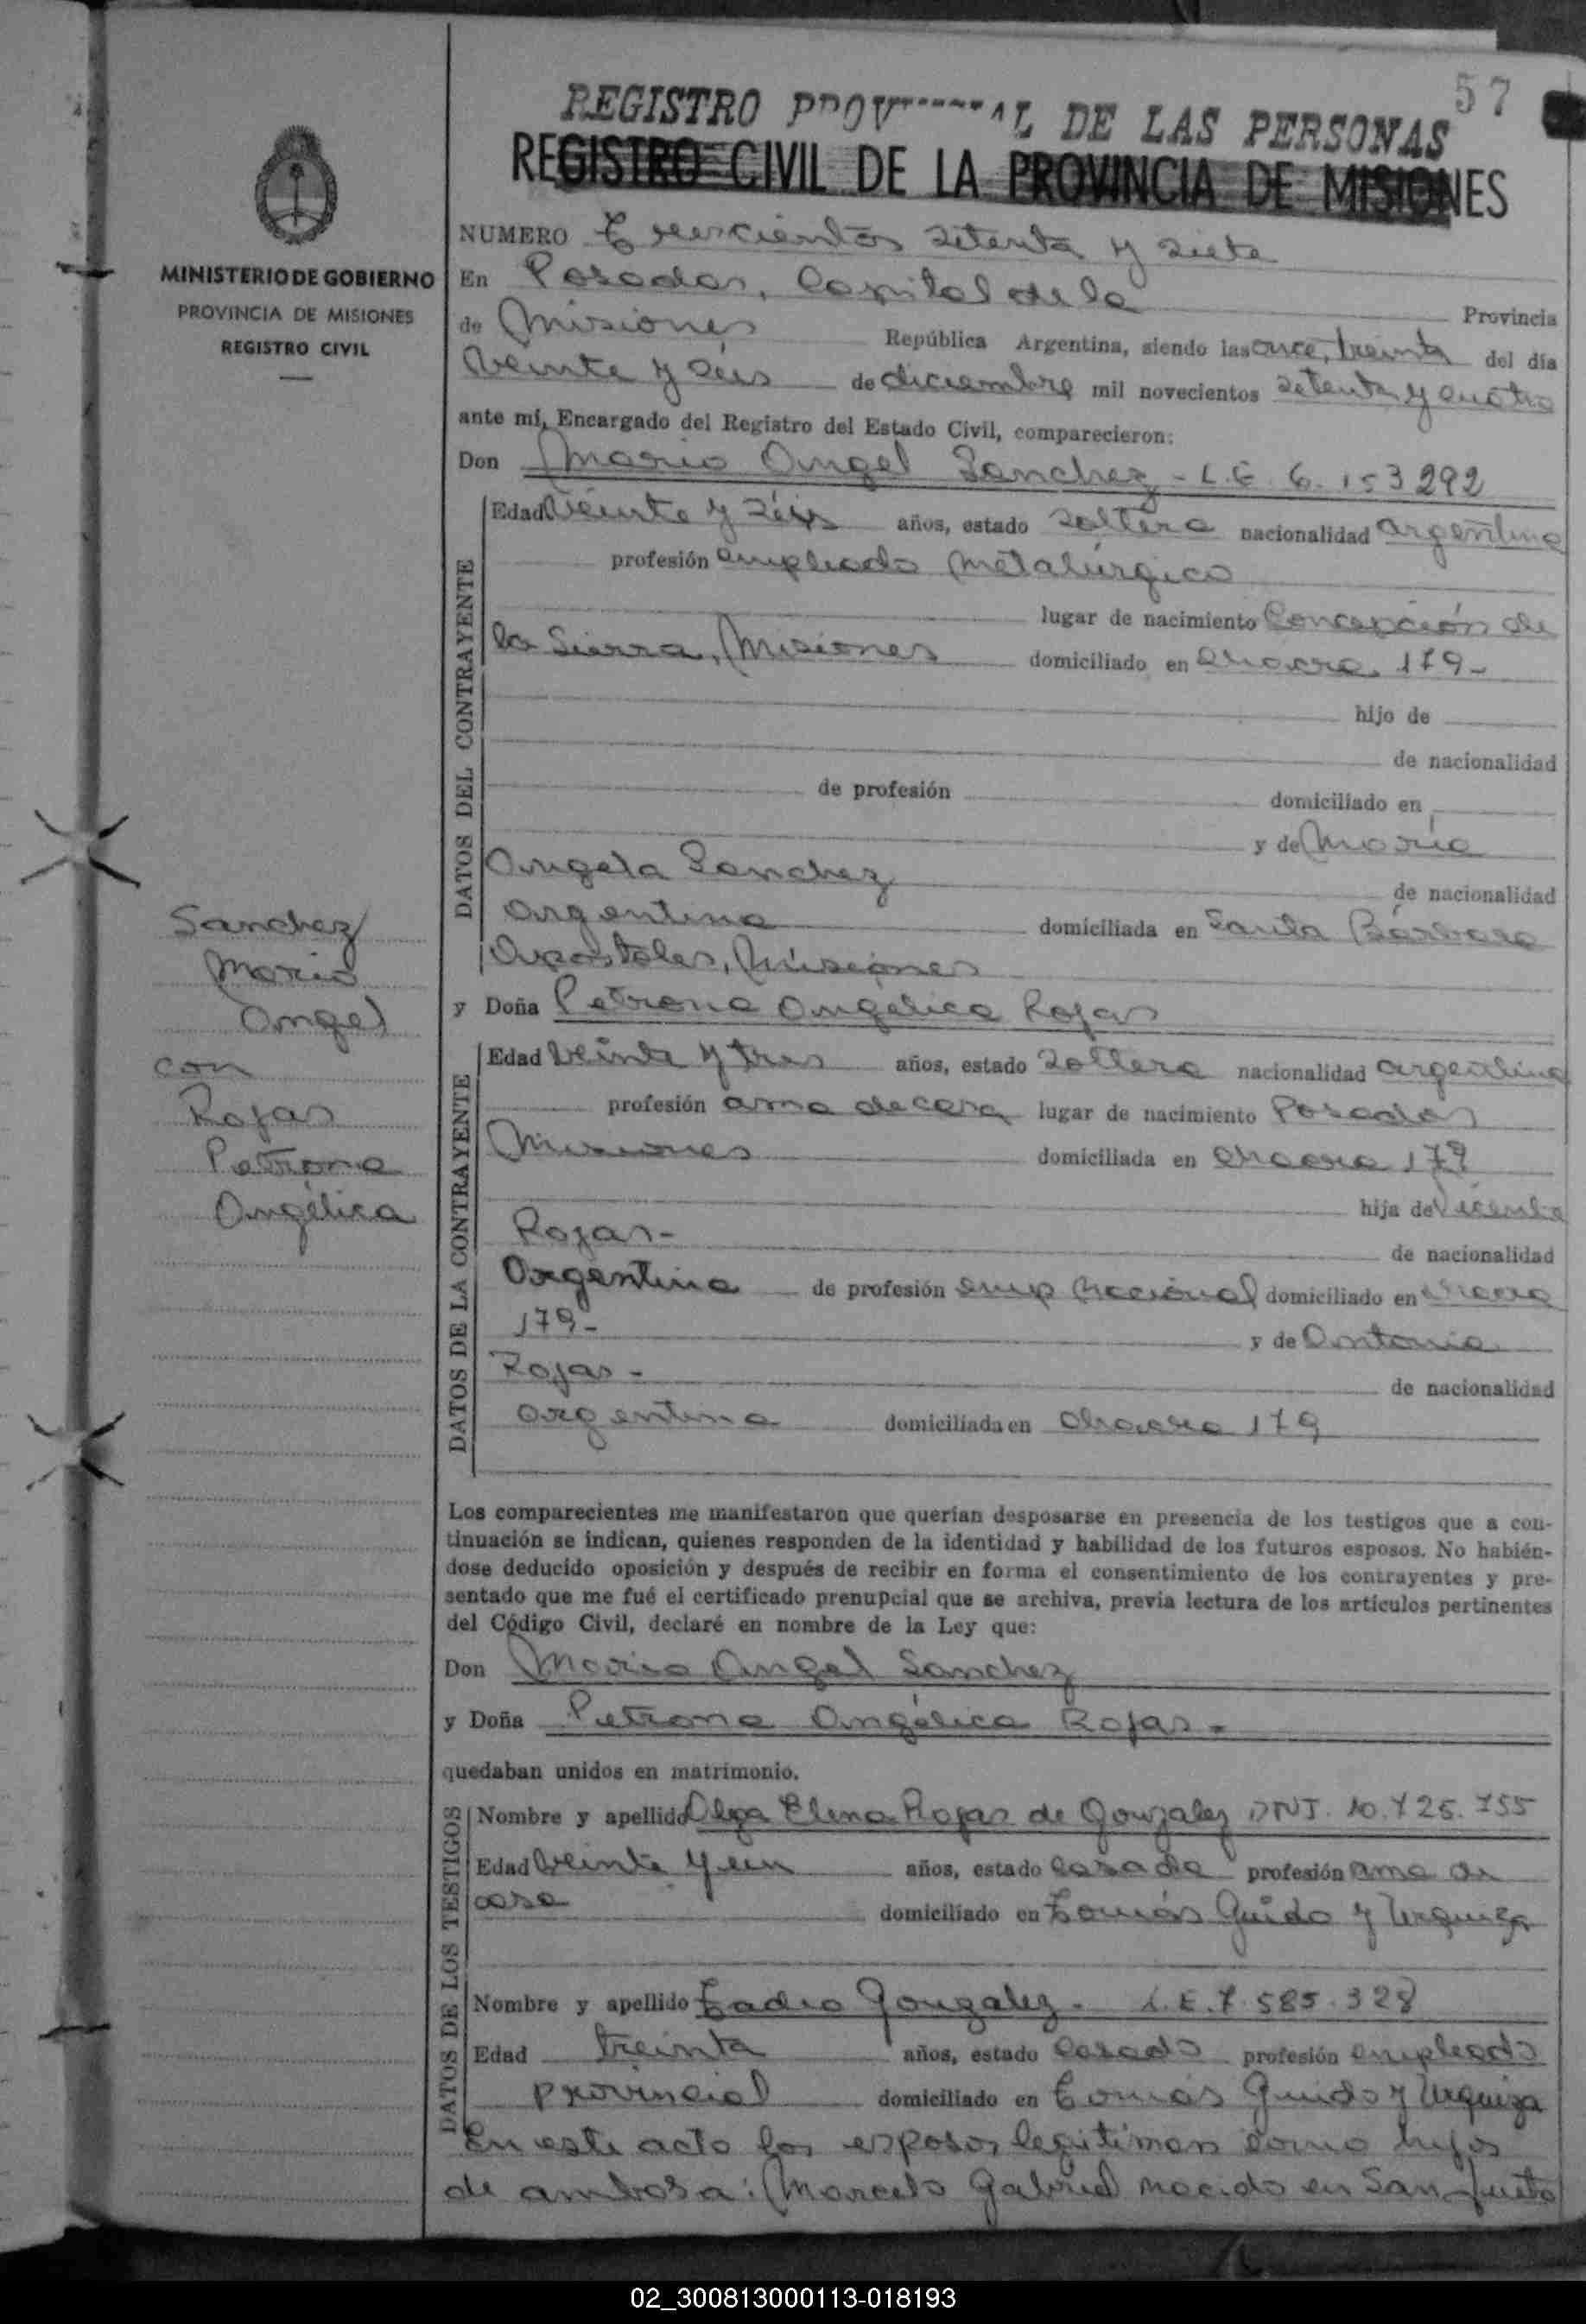 57
REGISTRO PROVINCIAL DE LAS PERSONAS
REGISTRO CIVIL DE LA PROVINCIA DE MISIONES
MINISTERIO DE GOBIERNO
PROVINCIA DE MISIONES
REGISTRO CIVIL
NUMERO Trescientos setenta y siete
En Posadas, Capital de la Provincia
de Misiones República Argentina, siendo las once, treinta del día
veinte y séis de diciembre mil novecientos setenta y cuatro
ante mí, Encargado del Registro del Estado Civil, comparecieron:
Don Mario Angel Sanchez - L.E. 6.153292
DATOS DEL CONTRAYENTE
Edad veinte y séis años, estado soltero nacionalidad argentino
profesión empleado metalúrgico
lugar de nacimiento Concepción de
la Sierra, Misiones domiciliado en chacra 179-
hijo de
de nacionalidad
de profesión domiciliado en
y de María
Angela Sanchez de nacionalidad
argentina domiciliada en Santa Bárbara
Apóstoles, Misiones
y Doña Petrona Angélica Rojas
DATOS DE LA CONTRAYENTE
Edad veinte y tres años, estado soltera nacionalidad argentina
profesión ama de casa lugar de nacimiento Posadas
Misiones domiciliada en chacra 179
hija de Vicente
Rojas- de nacionalidad
Argentina de profesión emp Nacional domiciliado en chacra
179- y de Antonia
Rojas - de nacionalidad
argentina domiciliada en chacra 179
Los comparecientes me manifestaron que querían desposarse en presencia de los testigos que a con-
tinuación se indican, quienes responden de la identidad y habilidad de los futuros esposos. No habién-
dose deducido oposición y después de recibir en forma el consentimiento de los contrayentes y pre-
sentado que me fué el certificado prenupcial que se archiva, previa lectura de los artículos pertinentes
del Código Civil, declaré en nombre de la Ley que:
Don Mario Angel Sanchez
y Doña Petrona Angélica Rojas -
quedaban unidos en matrimonio.
DATOS DE LOS TESTIGOS
Nombre y apellido Olga Elena Rojas de Gonzalez DNI.
Edad veinte y un años, estado casada profesión ama de
casa domiciliado en Tomás Guido y Urquiza
Nombre y apellido Tadeo Gonzalez - L.E.7.585.328
Edad treinta años, estado casado profesión empleado
provincial domiciliado en Tomás Guido y Urquiza
En este acto los esposos legitiman como hijos
de ambos a: Marcelo Gabriel nacido en San Justo
Sanchez
Mario
Angel
con
Rojas
Petrona
Angélica
02_300813000113-018193